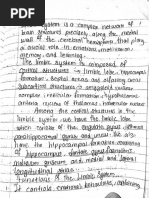 Limbic system is a complex network of
brain structures precisely along the medial
wall of the cerebral hemisphere that plays
a crucial role in emotional
memory, and learning.
The limbic system is composed of
cortical structures - limbic lobe, hippocampal
formation, septal areas and olfactory areas
subcortical structures - amygdaloid nucleus
reticular formation, hypothalamus
anterior nucleus of thalamus,
Among the cortical structures in the
limbic system we have the limbic lobe
which consists of the cingulate gyrus
parahippocampal gyrus and uncus. We also
have the hippocampal formation consisting
of hippocampus, dentate gyrus,
indusium griseum and medial and lateral
longitudinal striae.
Functions of the limbic system
It controls emotional behaviours,